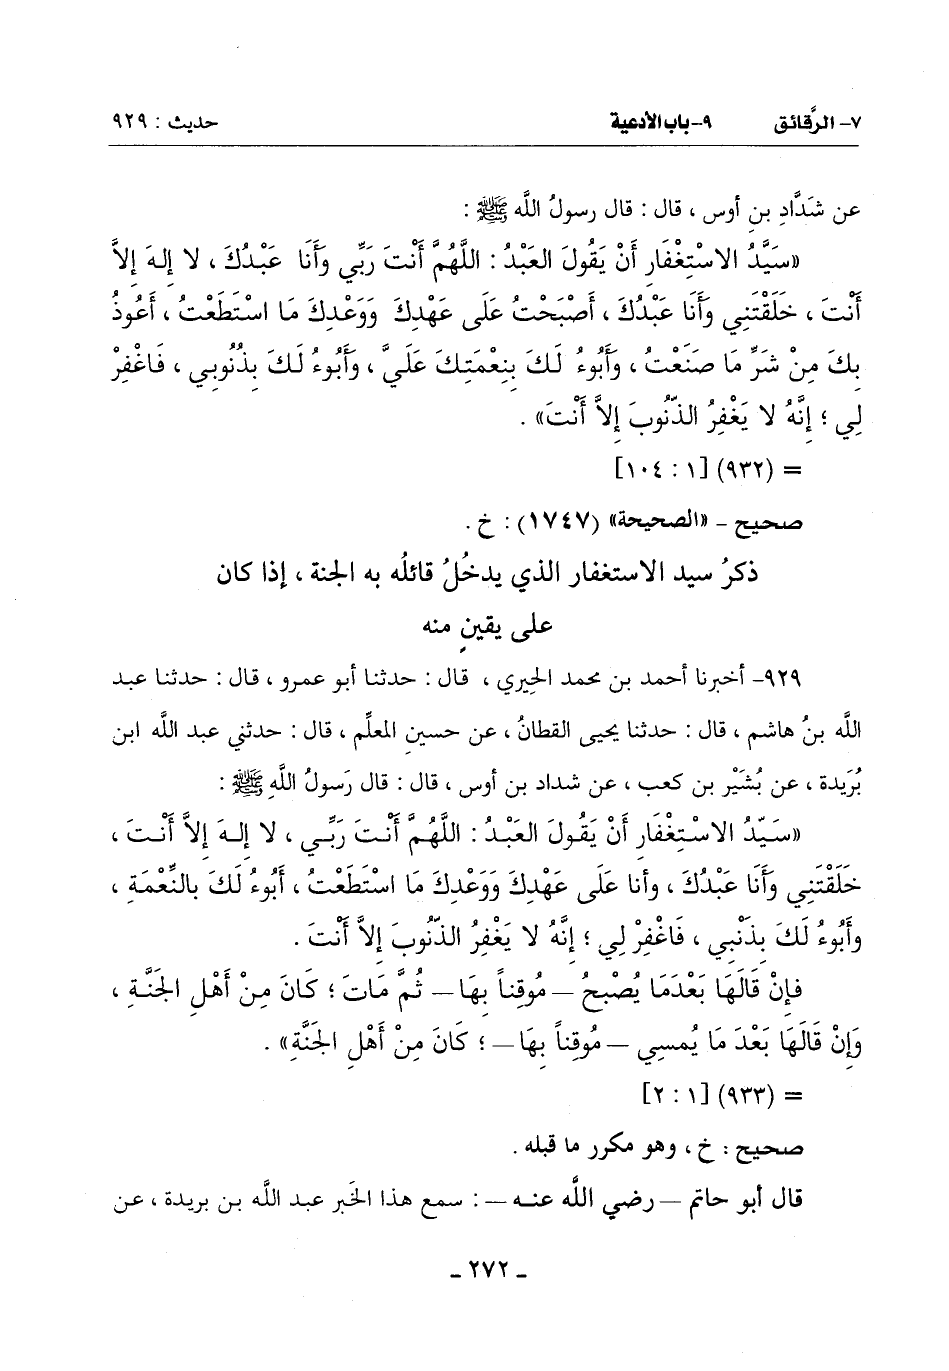 ٧- الرَّقائق ٩-باب الأدعية حديث : ٩٢٩
عن شَدَّادِ بنِ أوس ، قال : قال رسولُ اللَّه ﷺ :
«سَيَّدُ الاسْتِغْفَارِ أَنْ يَقُولَ العَبْدُ : اللَّهُمَّ أَنْتَ رَبِّي وأَنَا عَبْدُكَ ، لا إِلهَ إِلاَّ
أَنْتَ ، خَلَقْتَنِي وَأَنَا عَبْدُكَ ، أَصْبَحْتُ عَلَى عَهْدِكَ وَوَعْدِكَ مَا اسْتَطَعْتُ ، أَعُوذُ
بِكَ مِنْ شَرِّ مَا صَنَعْتُ ، وَأَبُوءُ لَكَ بِنِعْمَتِكَ عَلَيَّ ، وَأَبُوءُ لَكَ بِذُنُوبِي ، فَاغْفِرْ
لِي ؛ إِنَّهُ لا يَغْفِرُ الذّنُوبَ إِلاَّ أَنْتَ» .
= (٩٣٢) [١ : ١٠٤]
صحيح - «الصحيحة» (١٧٤٧) : خ .
ذكرُ سيد الاستغفار الذي يدخُلُ قائلُه به الجنة ، إذا كان
على يقينٍ منه
٩٢٩- أخبرنا أحمد بن محمد الحِيري ، قال : حدثنا أبو عمرو ، قال : حدثنا عبد
اللَّه بنُ هاشم ، قال : حدثنا يحيى القطانُ ، عن حسينٍ المعلِّم ، قال : حدثني عبد اللَّه ابن
بُرَيدة ، عن بُشَيْر بن كعب ، عن شداد بن أوس ، قال : قال رَسولُ اللَّهِ ﷺ :
«سَيّدُ الاسْتِغْفَارِ أَنْ يَقُولَ العَبْدُ : اللَّهُمَّ أَنْتَ رَبِّي ، لا إِلهَ إِلاَّ أَنْتَ ،
خَلَقْتَنِي وَأَنَا عَبْدُكَ ، وأنا عَلَى عَهْدِكَ وَوَعْدِكَ مَا اسْتَطَعْتُ ، أَبُوءُ لَكَ بالنِّعْمَةِ ،
وأَبُوءُ لَكَ بِذَنْبِي ، فَاغْفِرْ لِي ؛ إِنَّهُ لا يَغْفِرُ الذّنُوبَ إِلاَّ أَنْتَ .
فإنْ قَالَهَا بَعْدَمَا يُصْبِحُ — مُوقِناً بِهَا— ثُمَّ مَاتَ ؛ كَانَ مِنْ أَهْلِ الجَنَّةِ ،
وَإِنْ قَالَهَا بَعْدَ مَا يُمسِي — مُوقِناً بِهَا— ؛ كَانَ مِنْ أَهْلِ الجَنَّةِ» .
= (٩٣٣) [١ : ٢]
صحيح : خ ، وهو مكرر ما قبله .
قال أبو حاتم — رضي اللَّه عنه — : سمع هذا الخَبر عبد اللَّه بن بريدة ، عن
- ٢٧٢ -